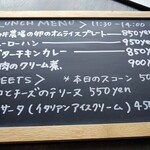 LUNCH MENU > 11:30-14:00
農場の卵のオムライスプレート 850yen
ーローハン 950yen
ターチキンカレー 850
肉のクリーム煮 900
EETS > *本日のスコーン 50
ロとチーズのテリーヌ 550yen
サータ(イタリアンアイスクリーム) 450